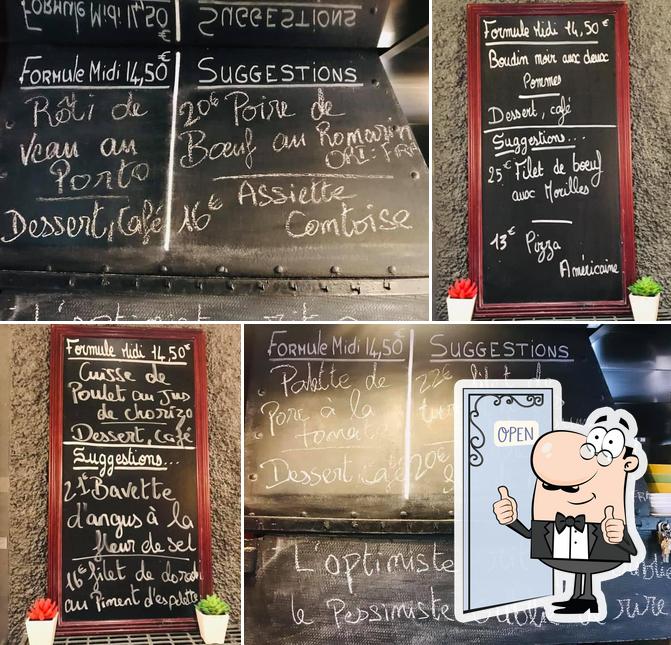 FORMULE MIDI 14,50€
SUGGESTIONS
Formule Midi 14,50€
Rôti de
veau au
Porto
Dessert, Café
SUGGESTIONS
20€ Poire de
Bœuf au Romarin
Assiette
16€ Comtoise
L'optimiste
Formule Midi 14,50€
Boudin noir aux deux
Pommes
Dessert, café
Suggestions...
25€ Filet de boeuf
aux Morilles
13€ Pizza
Américaine
Formule Midi 14,50€
Cuisse de
Poulet au Jus
de chorizo
Dessert, café
Suggestions...
21€ Bavette
d'angus à la
fleur de sel
16€ filet de dorade
au Piment d'espelette
Formule Midi 14,50€
Palette de
Porc à la
tomate
Dessert, café
SUGGESTIONS
22€ filet de
20€
L'optimiste
le Pessimiste oublie de rire
OPEN